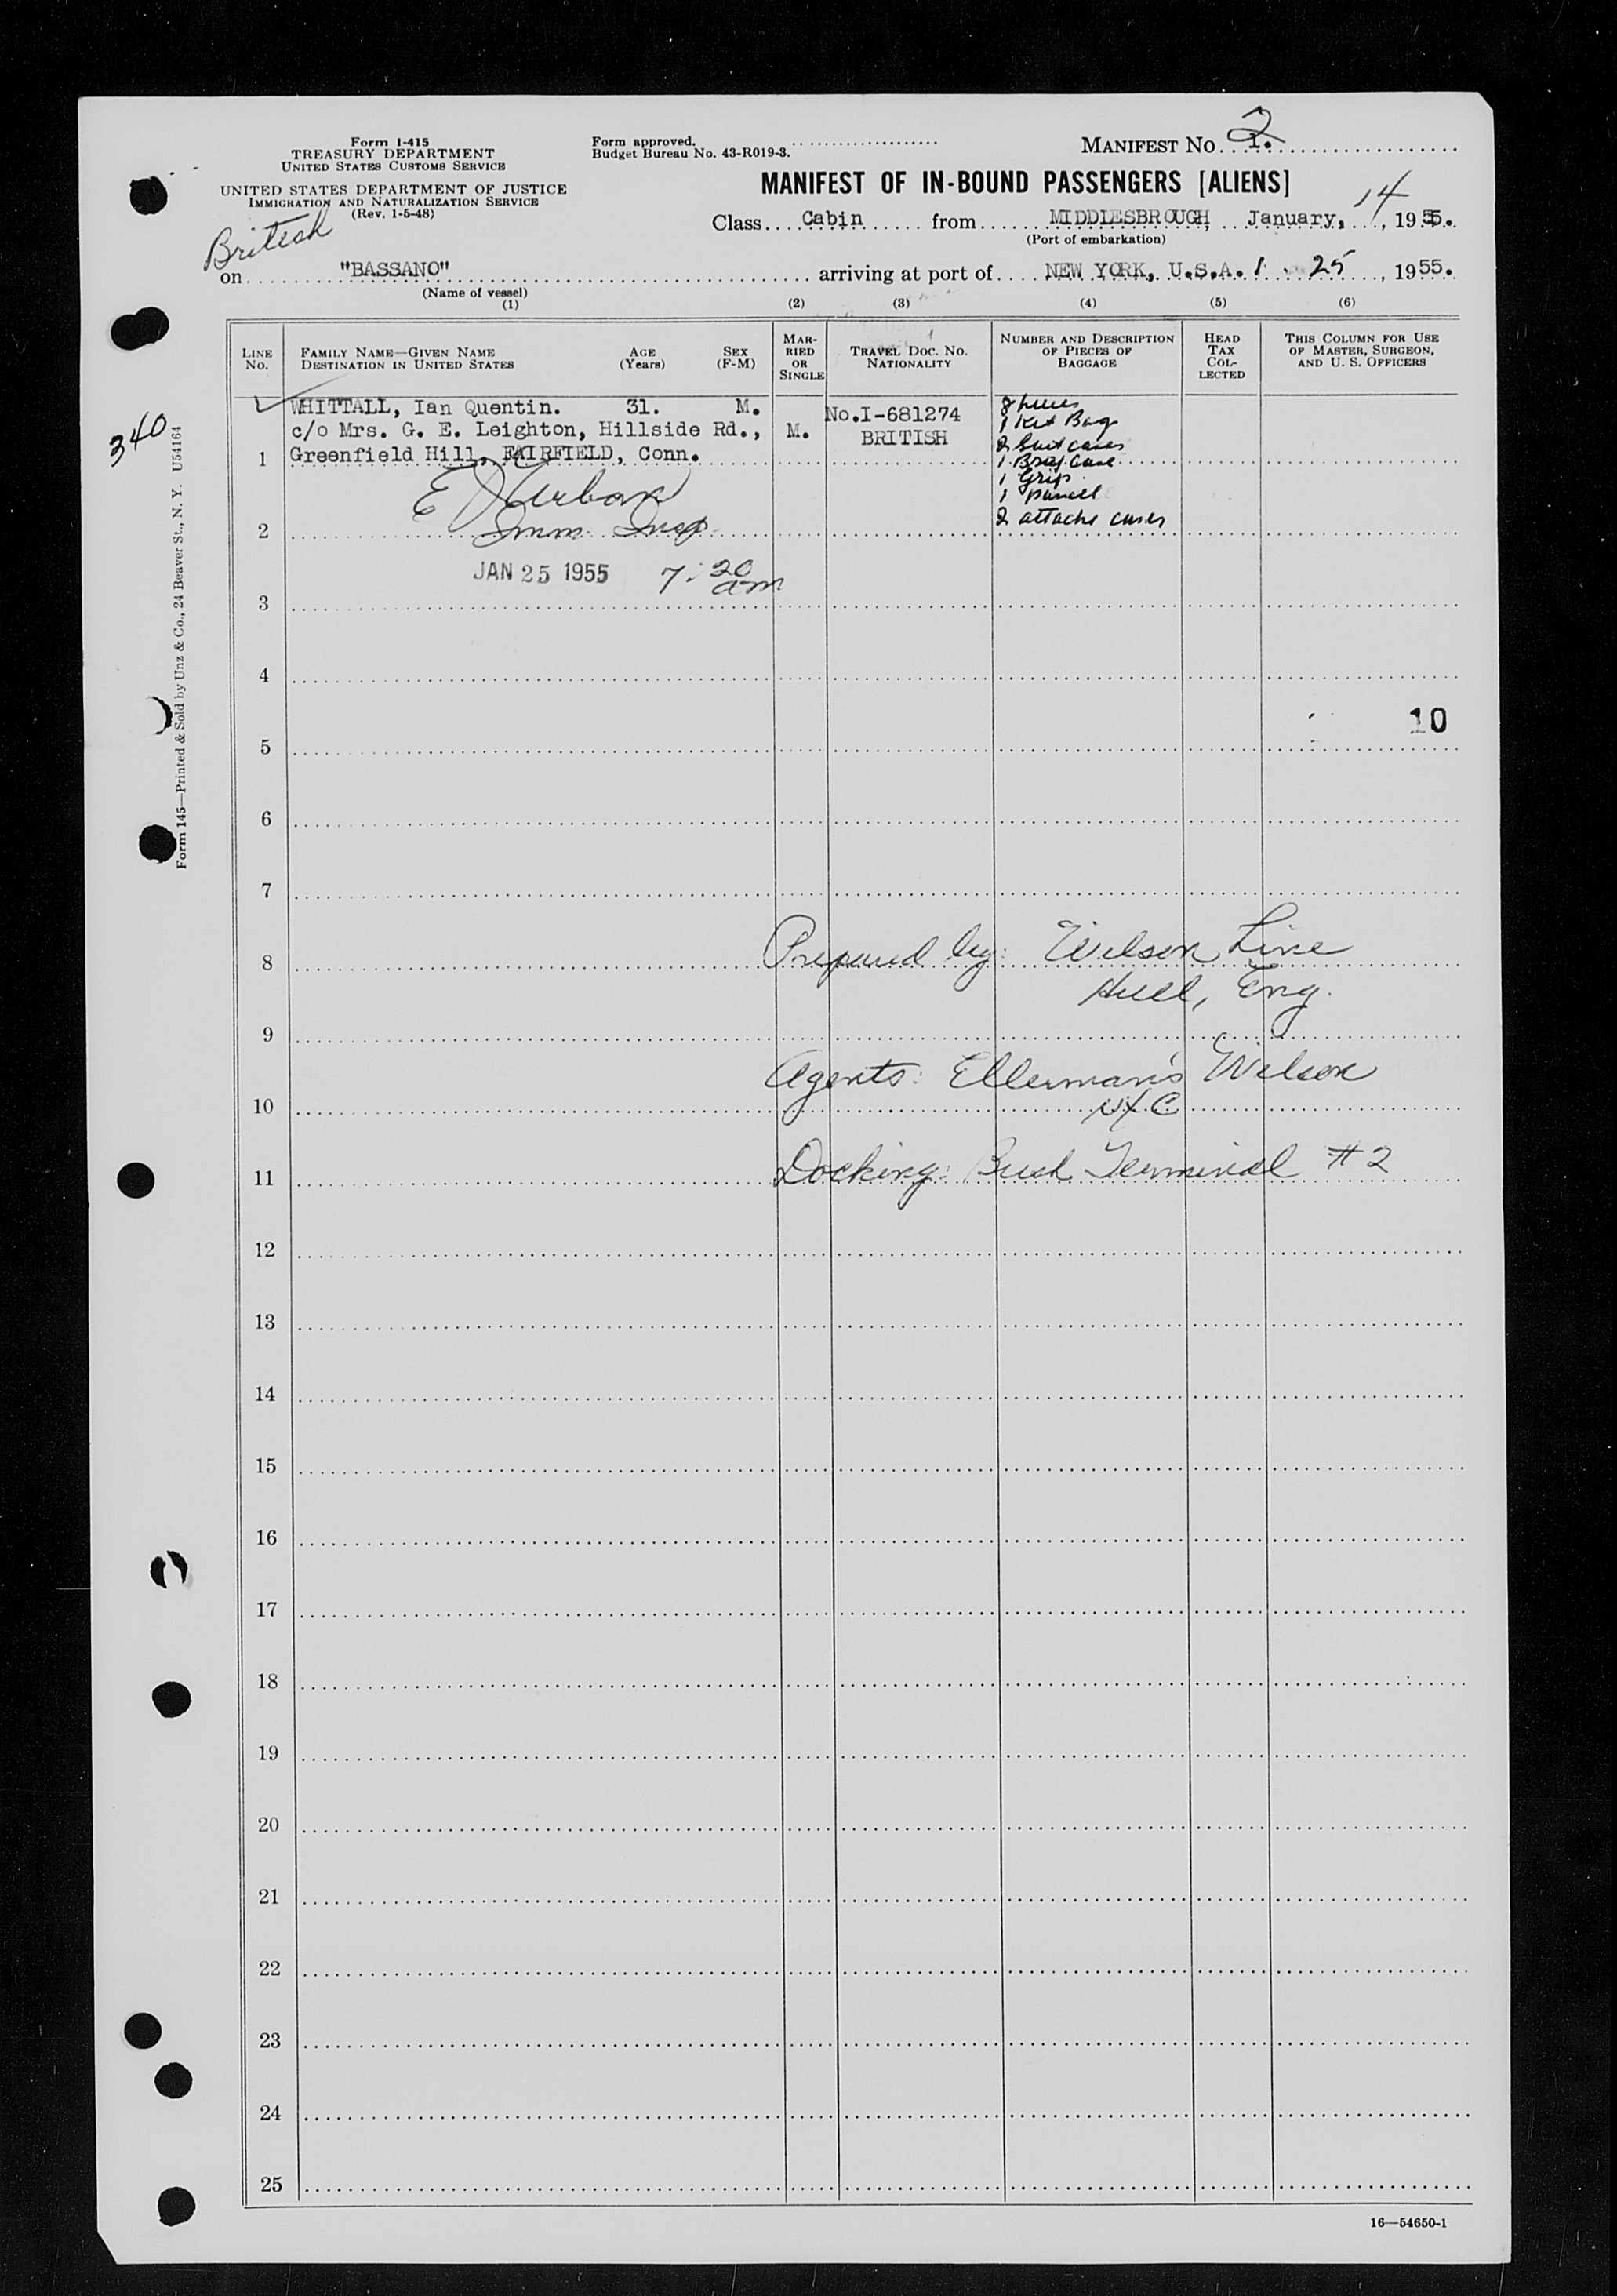 Form I-415
TREASURY DEPARTMENT
UNITED STATES CUSTOMS SERVICE
UNITED STATES DEPARTMENT OF JUSTICE
IMMIGRATION AND NATURALIZATION SERVICE
(Rev. 1-5-48)
Form approved.
Budget Bureau No. 43-R019-3.
MANIFEST No. 2
MANIFEST OF IN-BOUND PASSENGERS [ALIENS]
Class Cabin from MIDDLESBROUGH, January, 14, 1955.
(Port of embarkation)
British
on "BASSANO" arriving at port of NEW YORK, U.S.A. 1 25, 1955.
(Name of vessel)
(1) (2) (3) (4) (5) (6)
LINE No.
FAMILY NAME—GIVEN NAME
DESTINATION IN UNITED STATES
AGE (Years)
SEX (F-M)
MAR-RIED OR SINGLE
TRAVEL DOC. NO.
NATIONALITY
NUMBER AND DESCRIPTION OF PIECES OF BAGGAGE
HEAD TAX COL-LECTED
THIS COLUMN FOR USE OF MASTER, SURGEON, AND U. S. OFFICERS
340
WHITTALL, Ian Quentin. 31. M.
c/o Mrs. G. E. Leighton, Hillside Rd.,
1 Greenfield Hill, FAIRFIELD, Conn.
M.
No.I-681274
BRITISH
1 Kit Bag
2 Suit cases
1 Brief Case
1 Grip
1 parcel
2 attache cases
E J Urban
2 Imm Insp
JAN 25 1955 7:20 am
3
4
10
5
6
7
8 Prepared by: Wilson Line
Hull, Eng.
9
Agents: Ellerman's Wilson
10 NYC
11 Docking: Bush Terminal #2
12
13
14
15
16
17
18
19
20
21
22
23
24
25
16—54650-1
Form 145—Printed & Sold by Unz & Co., 24 Beaver St., N. Y. U54164